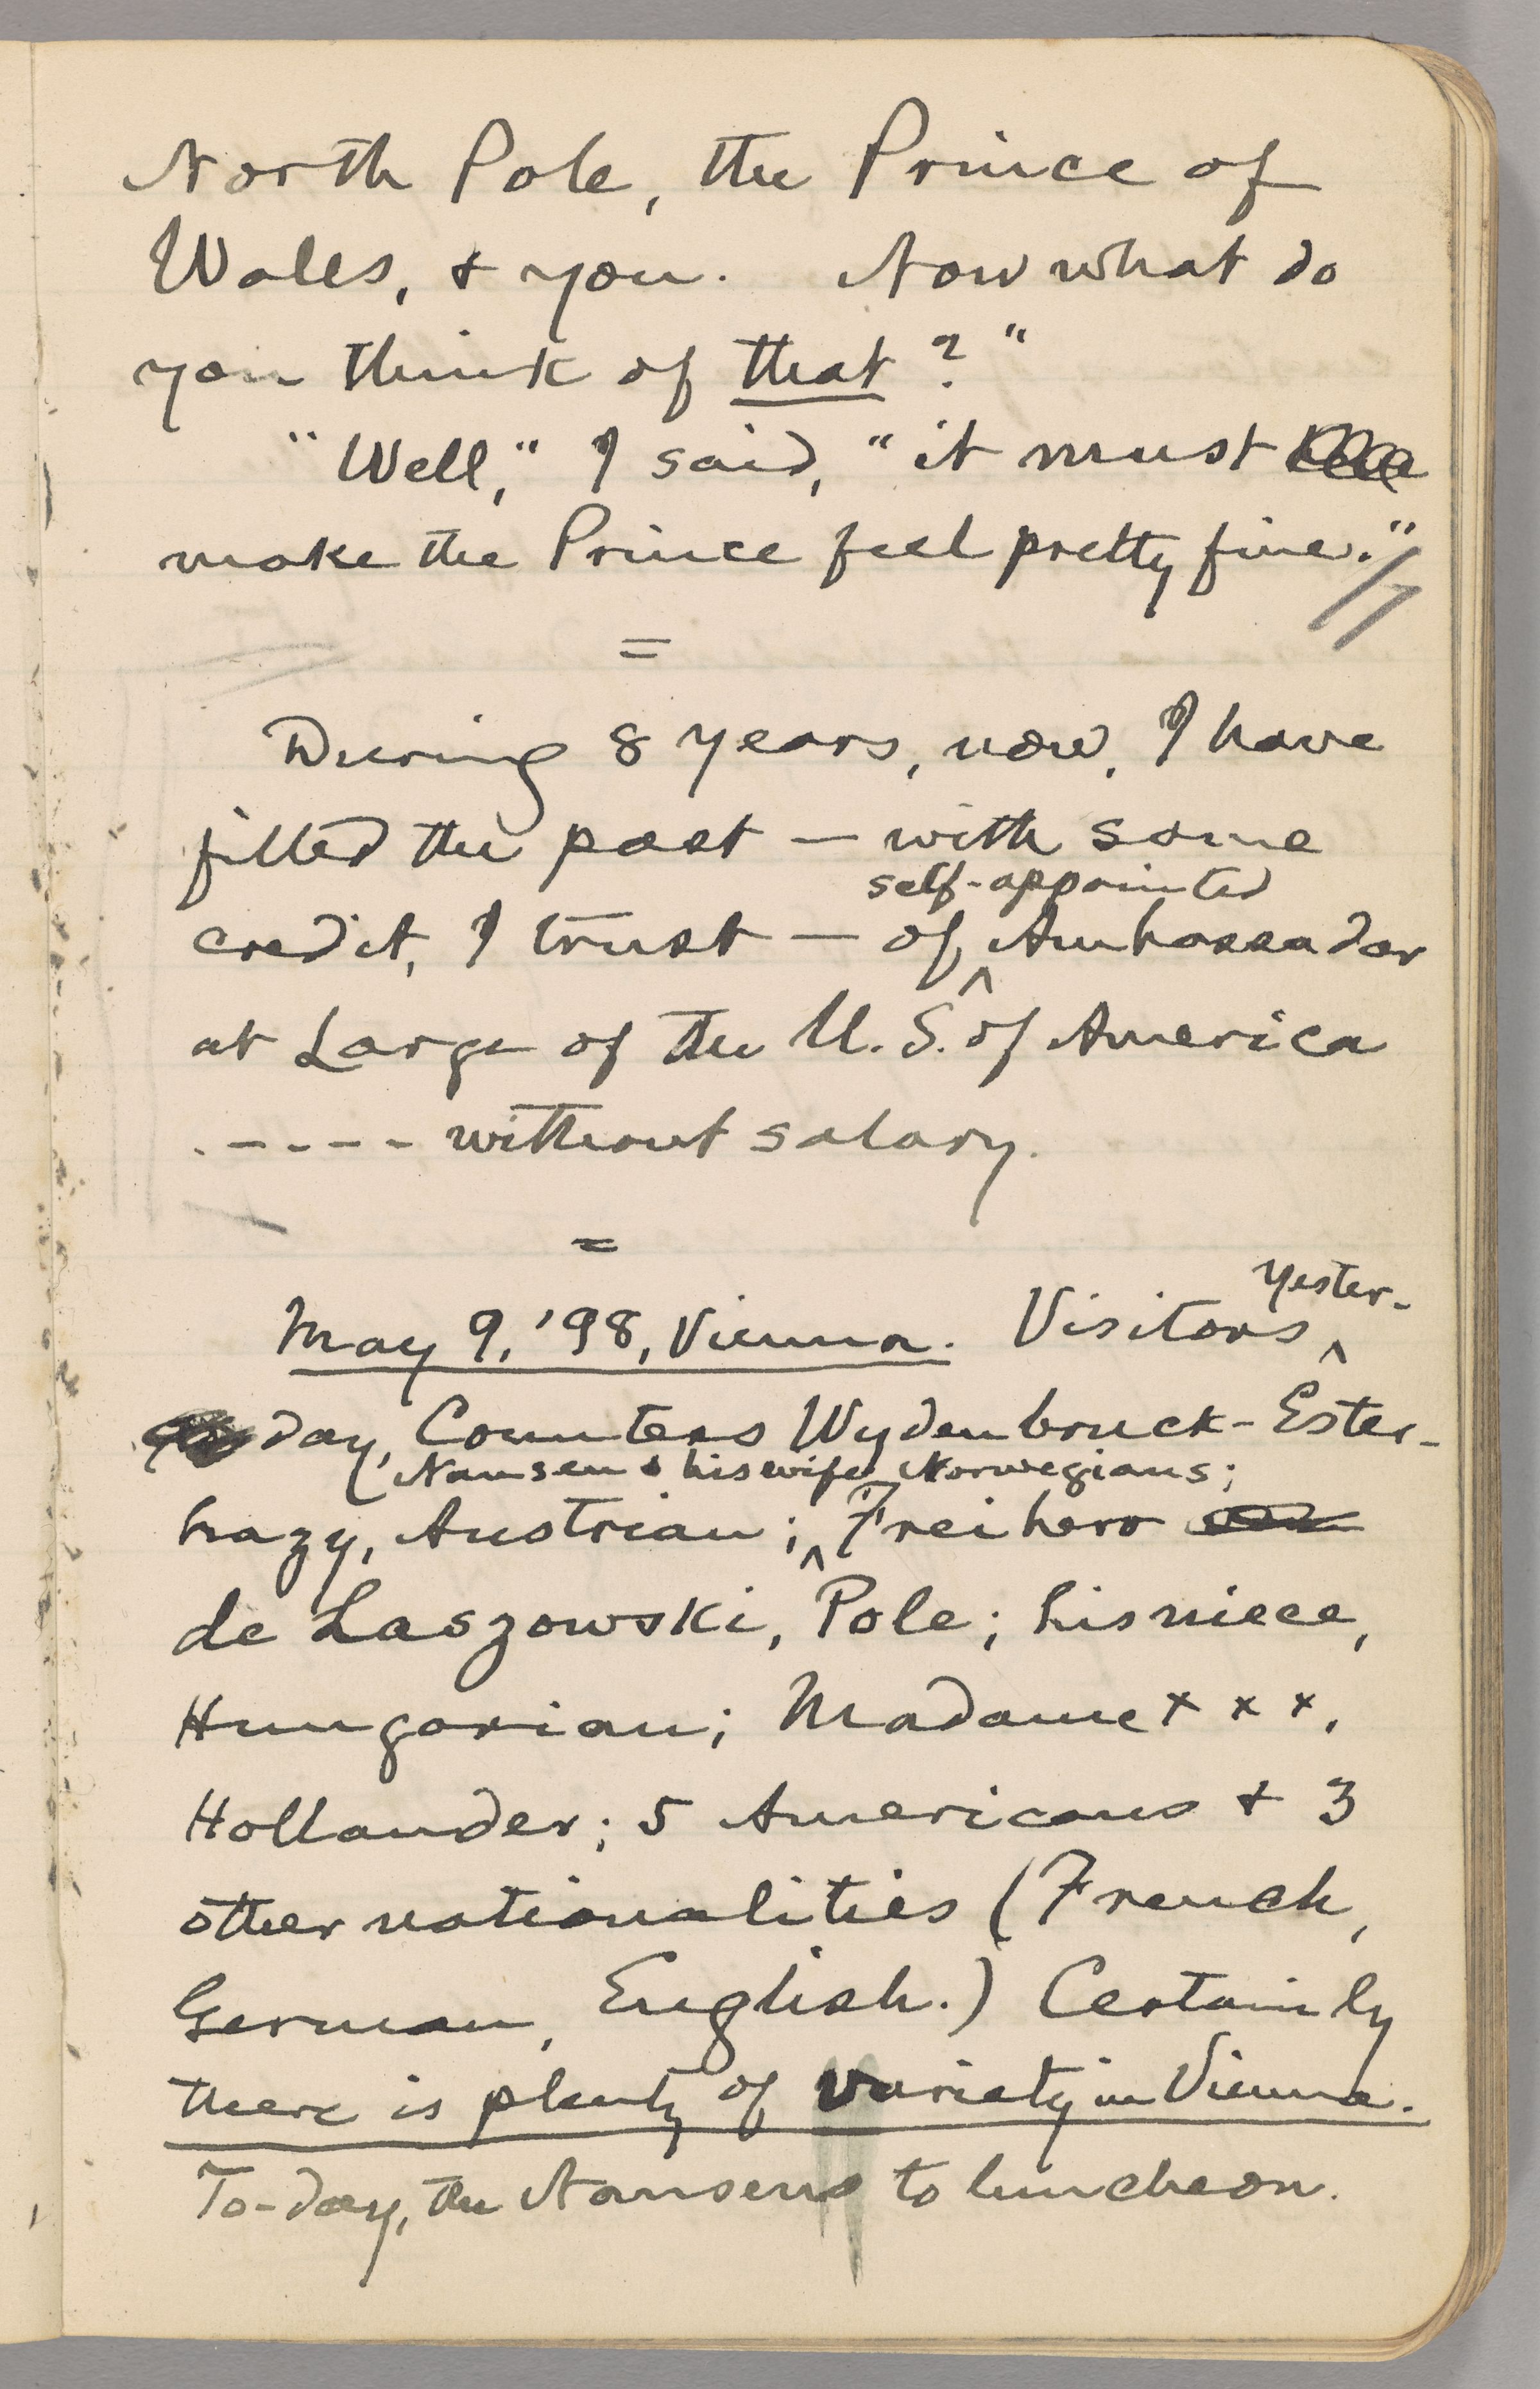 North Pole, the Prince of
Wales, & you. Now what do
you think of that?"
"Well," I said, "it must
make the Prince feel pretty fine."
=
During 8 years, now, I have
filled the post — with some
self-appointed
credit, I trust — of ^ Ambassador
at Large of the U. S. of America
. - - - - without salary.
=
yester-
May 9, '98, Vienna. Visitors ^
day, Countess Wydenbruck-Ester-
(Nansen & his wife, Norwegians;
hazy, Austrian; ^ Freiherr
de Laszowski, Pole; his niece,
Hungarian; Madame x x x,
Hollander; 5 Americans & 3
other nationalities (French,
German, English.) Certainly
there is plenty of variety in Vienna.
To-day, the Nansens to luncheon.